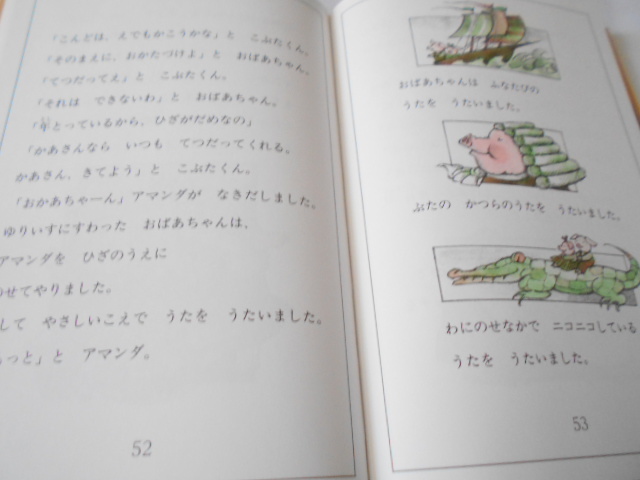 「こんどは、えでもかこうかな」と こぶたくん。
「そのまえに、おかたづけよ」と おばあちゃん。
「てつだってえ」と こぶたくん。
「それは できないわ」と おばあちゃん。
「年とっているから、ひざがだめなの」
「かあさんなら いつも てつだってくれる。
かあさん、きてよう」と こぶたくん。
「おかあちゃーん」アマンダが なきだしました。
ゆりいすにすわった おばあちゃんは、
アマンダを ひざのうえに
のせてやりました。
して やさしいこえで うたを うたいました。
っと」と アマンダ。
52
おばあちゃんは ふなたびの
うたを うたいました。
ぶたの かつらのうたを うたいました。
わにのせなかで ニコニコしている
うたを うたいました。
53